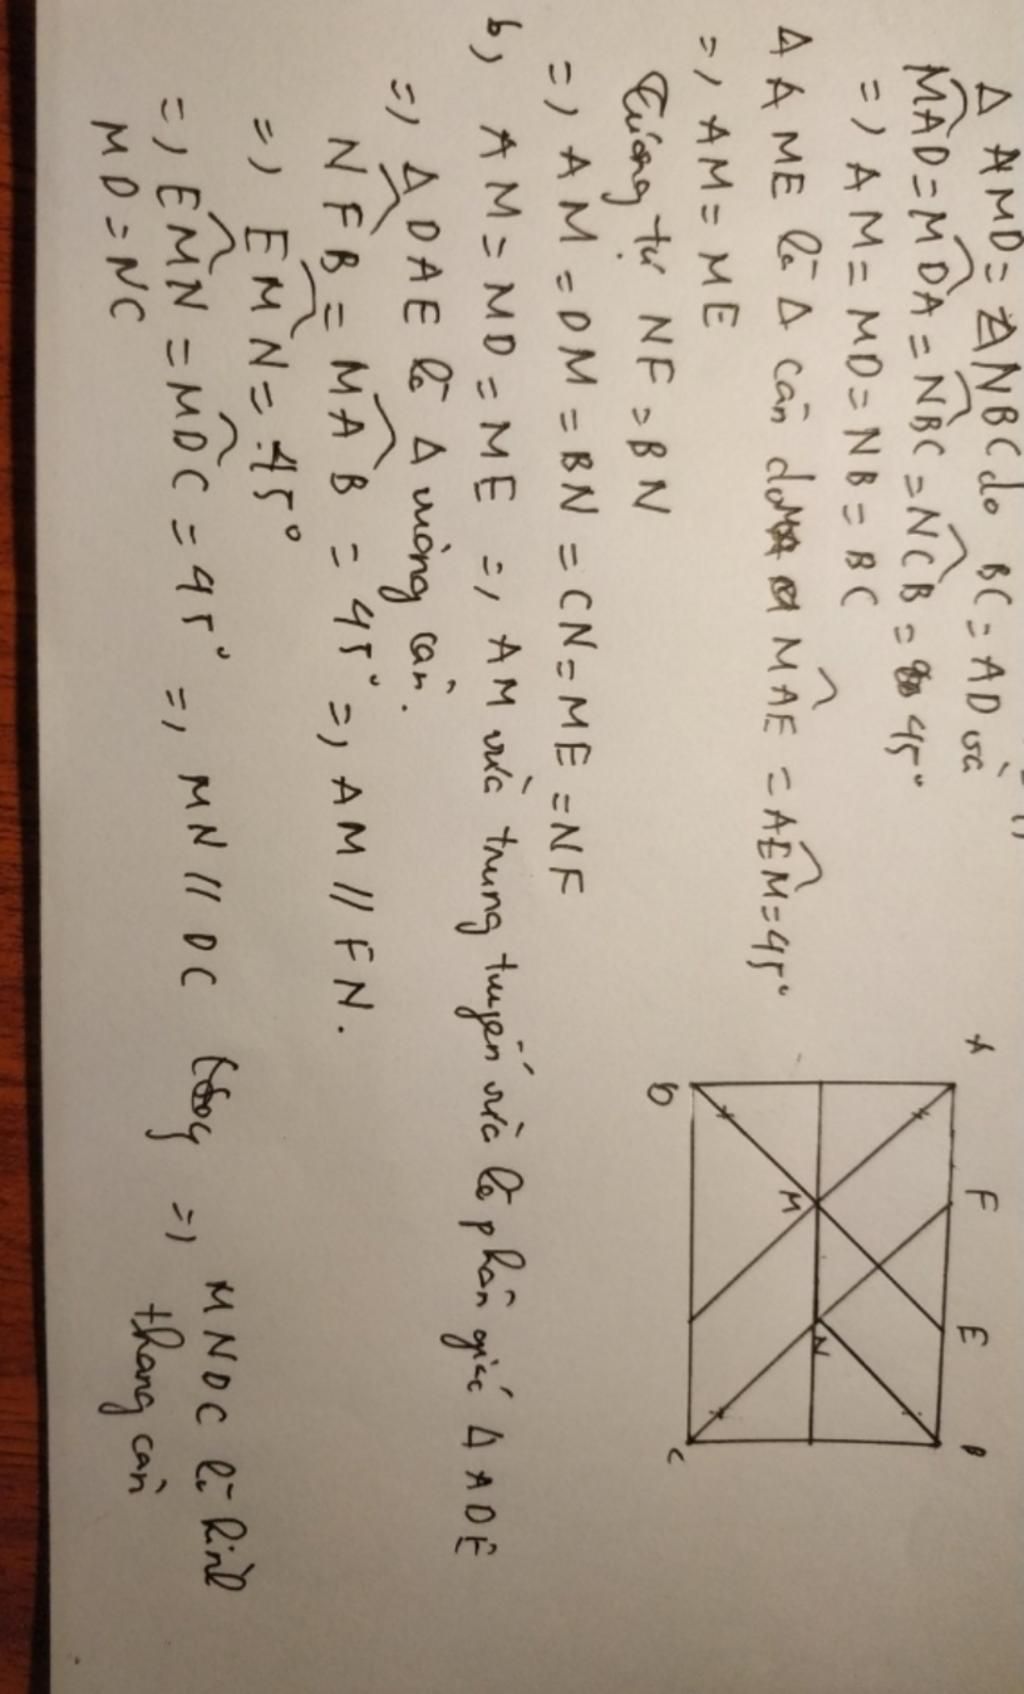 Δ AMD = ΔNBC do BC = AD và
MAD = MDA = NBC = NCB = 45°
=, AM = MD = NB = BC
Δ AME là Δ cân do MAE = AEM = 45°
=, AM = ME
Tương tự NF = BN
=, AM = DM = BN = CN = ME = NF
b, AM = MD = ME =, AM vừa trung tuyến vừa là phân giác Δ ADE
=, Δ DAE là Δ vuông cân.
NFB = MAB = 45° =, AM // FN.
=, EMN = 45°
=, EMN = MDC = 45° =, MN // DC =, MNDC là hình
MD = NC thang cân
A F E B
M N
D C